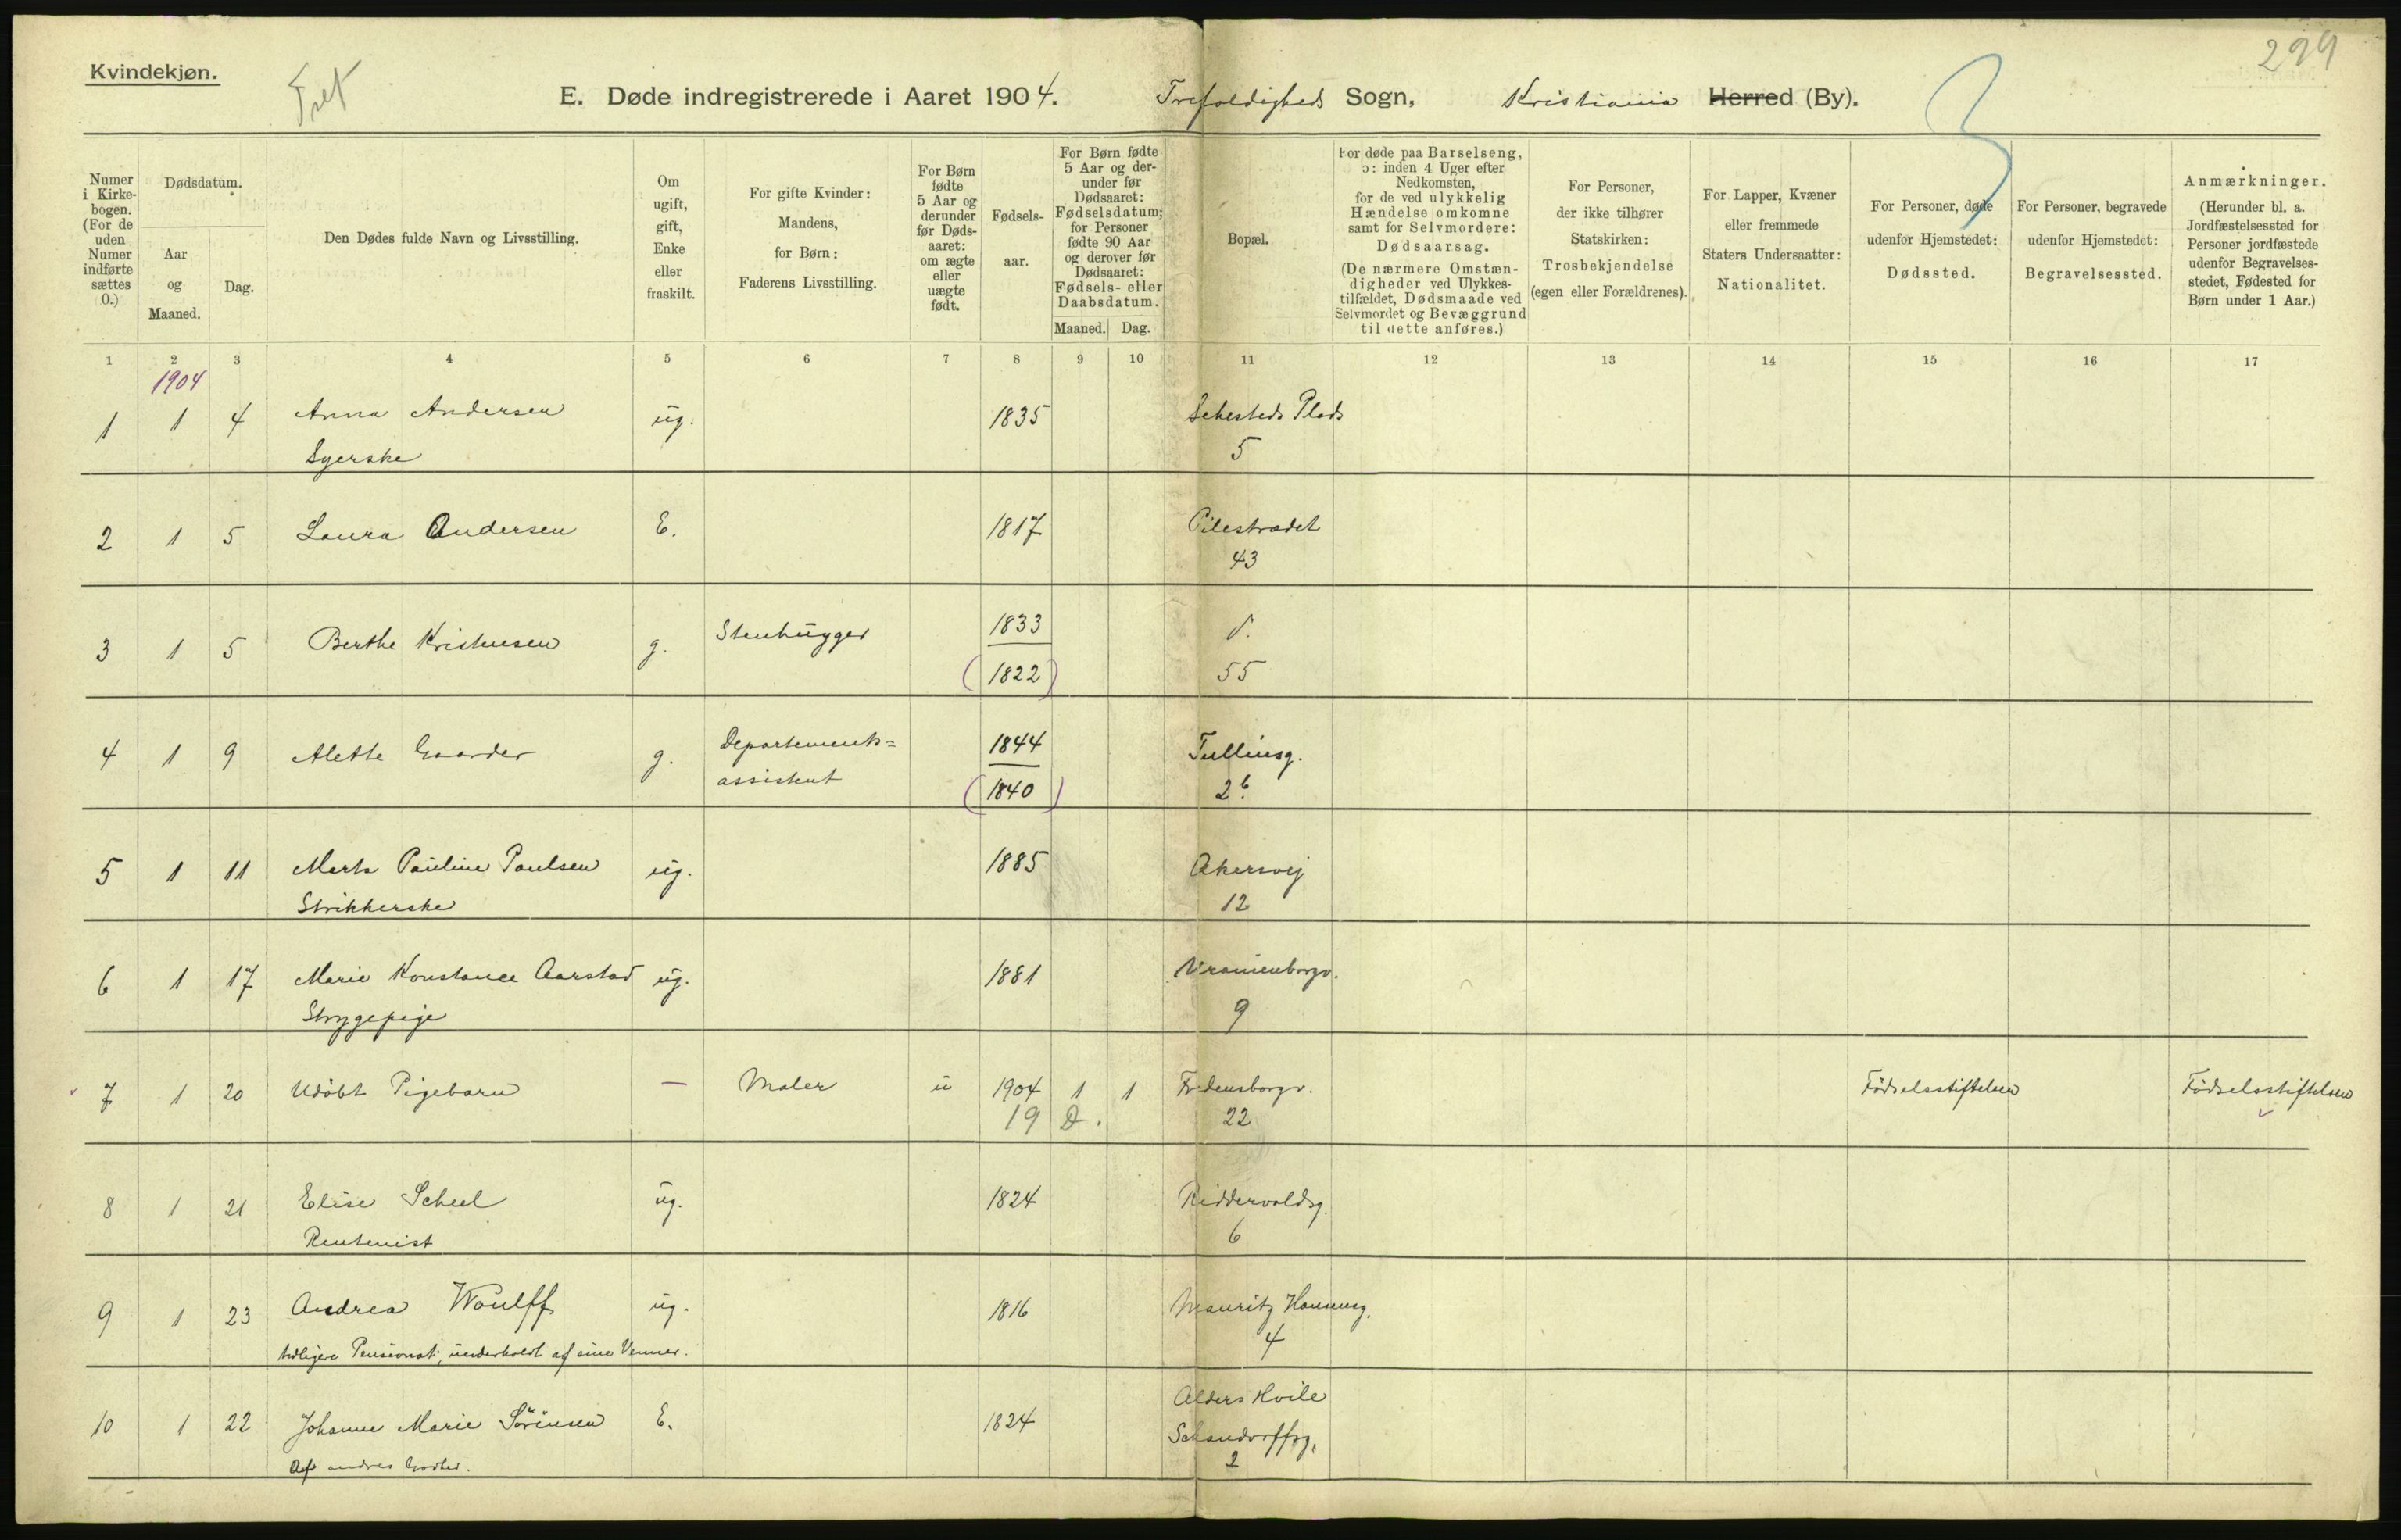 Kvindekjøn.
Tref
299
3
E. Døde indregistrerede i Aaret 1904. Trefoldigheds Sogn, Kristiania Herred (By).
Numer i Kirkebogen. (For de uden Numer indførte sættes 0.)
Dødsdatum.
Aar og Maaned.
Dag.
Den Dødes fulde Navn og Livsstilling.
Om ugift, gift, Enke eller fraskilt.
For gifte Kvinder: Mandens, for Børn: Faderens Livsstilling.
For Børn fødte 5 Aar og derunder før Dødsaaret: om ægte eller uægte født.
Fødselsaar.
For Børn fødte 5 Aar og derunder før Dødsaaret: Fødselsdatum; for Personer fødte 90 Aar og derover før Dødsaaret: Fødsels- eller Daabsdatum.
Maaned. Dag.
Bopæl.
For døde paa Barselseng, ɔ: inden 4 Uger efter Nedkomsten, for de ved ulykkelig Hændelse omkomne samt for Selvmordere: Dødsaarsag. (De nærmere Omstændigheder ved Ulykkestilfældet, Dødsmaade ved Selvmordet og Bevæggrund til dette anføres.)
For Personer, der ikke tilhører Statskirken: Trosbekjendelse (egen eller Forældrenes).
For Lapper, Kvæner eller fremmede Staters Undersaatter: Nationalitet.
For Personer, døde udenfor Hjemstedet: Dødssted.
For Personer, begravede udenfor Hjemstedet: Begravelsessted.
Anmærkninger. (Herunder bl. a. Jordfæstelsessted for Personer jordfæstede udenfor Begravelsesstedet, Fødested for Børn under 1 Aar.)
1 2 3 4 5 6 7 8 9 10 11 12 13 14 15 16 17
1904
1 1 4 Anna Andersen ug. 1835 Sehesteds Plads
Syerske 5
2 1 5 Laura Andersen E. 1817 Pilestrædet
43
3 1 5 Berthe Kristensen g. Stenhugger 1833 d.
(1822) 55
4 1 9 Alette Gaarder g. Departements= 1844 Tullinsg.
assistent (1840) 2 b.
5 1 11 Marta Pauline Paulsen ug. 1885 Akersvej
Strikkerske 12
6 1 17 Marie Konstance Aarstad ug. 1881 Uranienborgv.
Strygepige 9
7 1 20 Udöbt Pigebarn — Maler u 1904 1 1 Fredensborgv. Födselsstiftelsen Födselsstiftelsen
19 D. 22
8 1 21 Elise Scheel ug. 1824 Riddervoldsg.
Rentenist 6
9 1 23 Andrea Woulff ug. 1816 Mauritz Hansensg.
tidligere Pensionist, underholdt af sine Venner. 4
10 1 22 Johanne Marie Sörensen E. 1824 Alders Hvile
Schandorffsg.
Af andres Godhed. 2